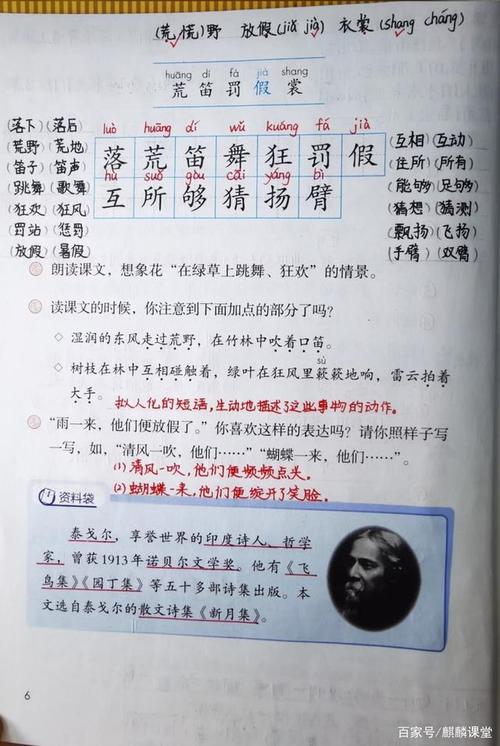 (荒 慌)野 放假(jiǎ jià) 衣裳(shang cháng)
huāng dí fá jià shang
荒 笛 罚 假 裳
luò huāng dí wǔ kuáng fá jià
落 荒 笛 舞 狂 罚 假
hù suǒ gòu cāi yáng bì
互 所 够 猜 扬 臂
(落下)(落后)
(荒野)(荒地)
(笛子)(笛声)
(跳舞)(歌舞)
(狂欢)(狂风)
(罚站)(惩罚)
(放假)(暑假)
(互相)(互动)
(住所)(所有)
(能够)(足够)
(猜想)(猜测)
(飘扬)(飞扬)
(手臂)(双臂)
朗读课文,想象花“在绿草上跳舞、狂欢”的情景。
读课文的时候,你注意到下面加点的部分了吗?
◇ 湿润的东风走过荒野,在竹林中吹着口笛。
sù
◇ 树枝在林中互相碰触着,绿叶在狂风里簌簌地响,雷云拍着
大手。
拟人化的短语,生动地描述了这些事物的动作。
“雨一来,他们便放假了。”你喜欢这样的表达吗?请你照样子写
一写,如,“清风一吹,他们……”“蝴蝶一来,他们……”。
(1)清风一吹,他们便频频点头。
(2)蝴蝶一来,他们便绽开了笑脸。
资料袋
泰戈尔,享誉世界的印度诗人、哲学
家,曾获1913年诺贝尔文学奖。他有《飞
鸟集》《园丁集》等五十多部诗集出版。本
文选自泰戈尔的散文诗集《新月集》。
6
百家号/麒麟课堂